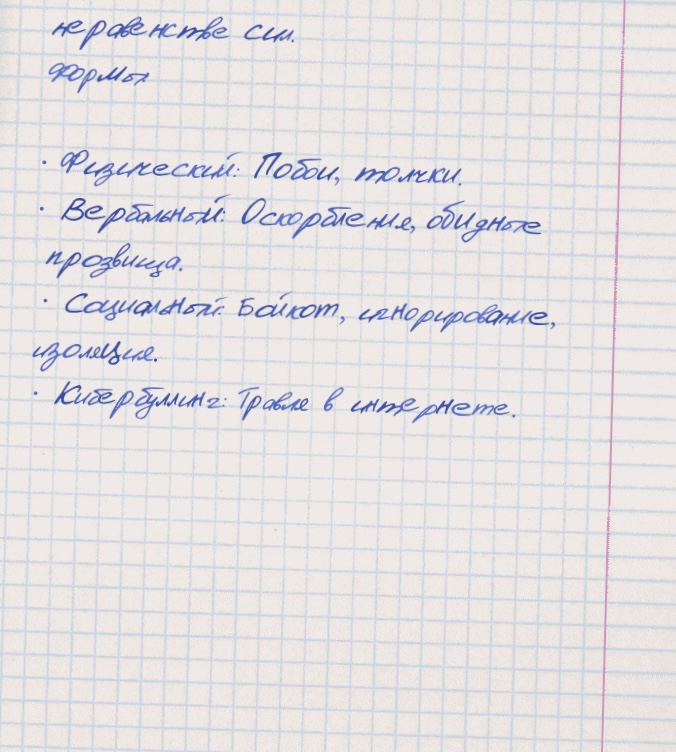 неравенстве сил.
Формы
· Физический: Побои, толчки.
· Вербальный: Оскорбления, обидные
прозвища.
· Социальный: Бойкот, игнорирование,
изоляция.
· Кибербуллинг: Травля в интернете.